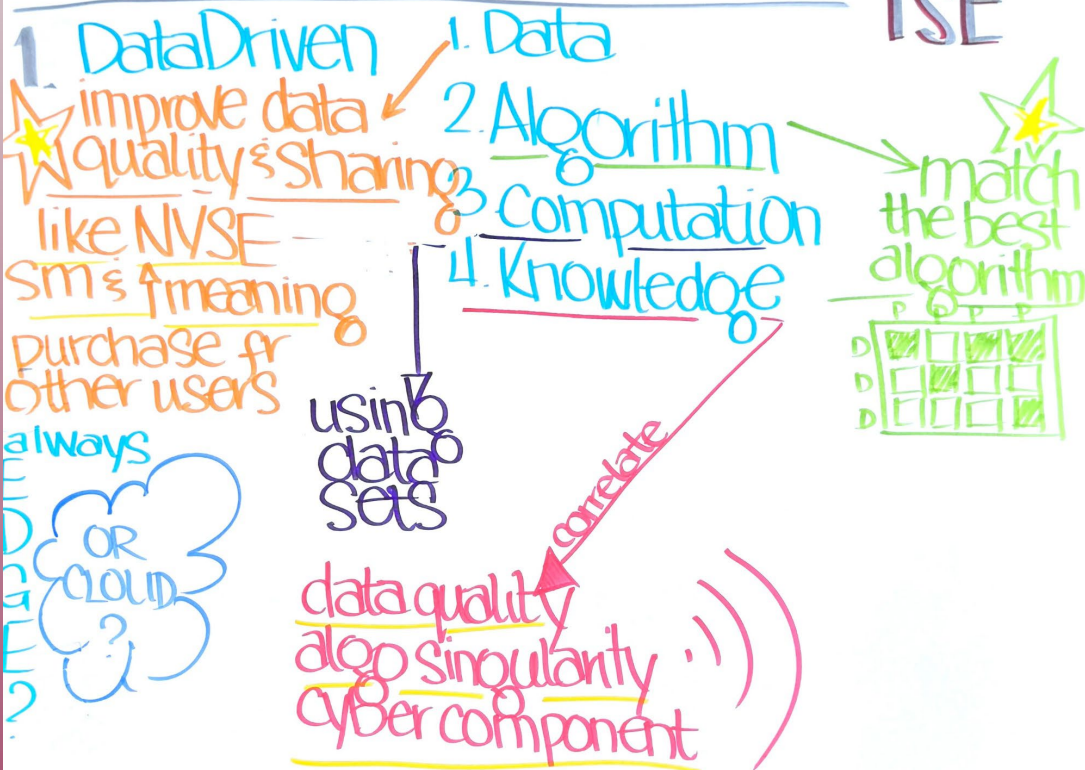 TSE
1. DataDriven
improve data
quality & sharing
like NYSE
sm & ↑ meaning
purchase fr
other users
always
E
D
G
E
?
OR
CLOUD
?
1. Data
2. Algorithm
3 Computation
4. Knowledge
using
data
sets
correlate
data quality
algo singularity
cyber component
match
the best
algorithm
P P P P
D
D
D